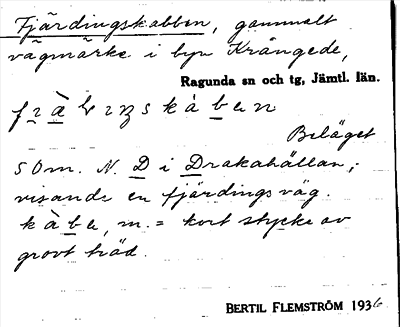 Fjärdingskabben, gammalt
vägmärke i byn Krångede,
Ragunda sn och tg, Jämtl. län.
Beläget
50m. N. D i Drakahällan,;
visande en fjärdingsväg.
kàbe, m. = kort stycke av
grovt träd.
BERTIL FLEMSTRÖM 1936